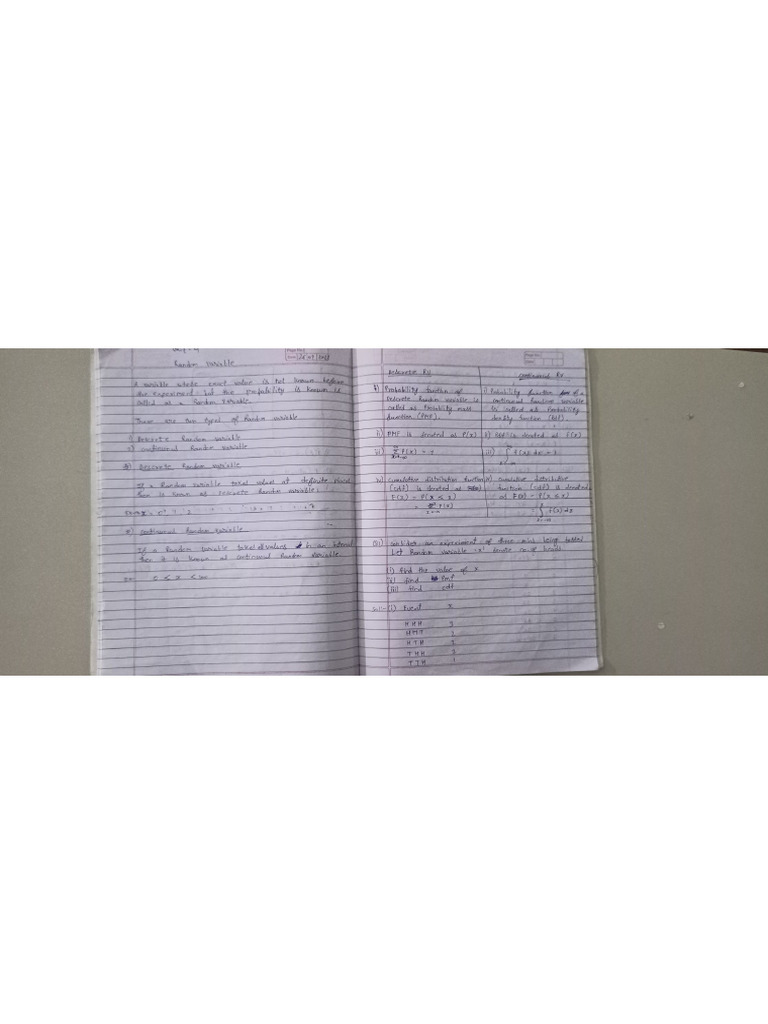 Random Variable
A variable whose exact value is not known before
the experiment but the probability is known is
called as a Random variable.
There are two types of Random variable
i) Descrete Random variable
ii) continuous Random variable
Descrete Random variable
If a Random variable takes value at definite
then is known as descrete Random variable.
continuous Random variable
If a Random variable takes all values in an interval
then it is known as continuous Random variable
Descrete RV
i) Probability function of
Descrete Random variable is
called as Probability mass
function (PMF).
ii) PMF is denoted as P(x)
iii) ∑ P(x) = 1
iv) Cumulative distribution function
(cdf) is denoted as
F(x) = P(X ≤ x)
= ∑ P(x)
continuous RV
i) Probability function of a
continuous Random variable
is called as Probability
density function (Pdf).
ii) Pdf is denoted as f(x)
iii) ∫ f(x) dx = 1
iv) cumulative distributive
function (cdf) is denoted
as F(x) = P(X ≤ x)
= ∫ f(x) dx
consider an experiment of three coins being tossed
Let Random variable 'x' denote no. of heads
(i) find the value of x
(ii) find Pmf
(iii) find cdf
Soln- (i) Event x
HHH 3
HHT 2
HTH 2
THH
TTH 1